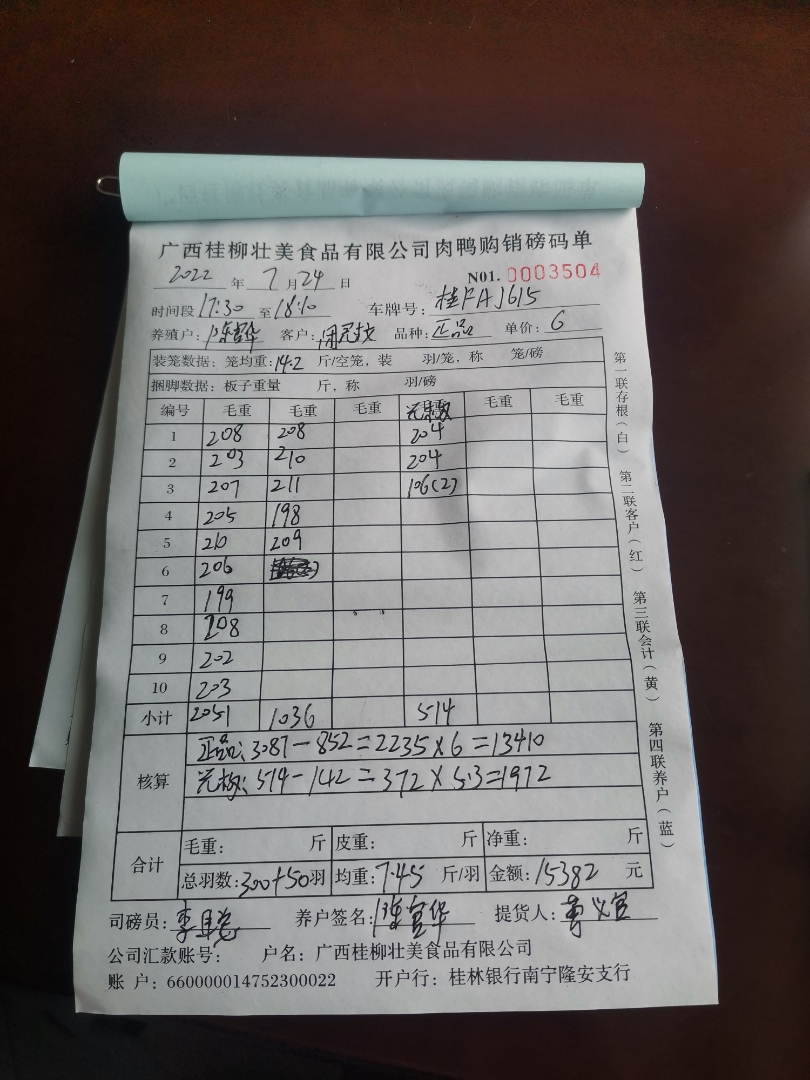 广西桂柳壮美食品有限公司肉鸭购销磅码单
2022 年 7 月 24 日 N01. 0003504
时间段 17:30 至 18:10 车牌号: 桂FAJ615
养殖户: 陈富华 客户: 品种: 正品 单价: 6
装笼数据: 笼均重: 14.2 斤/空笼, 装 羽/笼, 称 笼/磅
捆脚数据: 板子重量 斤, 称 羽/磅
编号 毛重 毛重 毛重 毛重 毛重
1 208 208 204
2 203 210 204
3 207 211 106(2)
4 205 198
5 210 209
6 206
7 199
8 208
9 202
10 203
小计 2051 1036 514
核算
正品: 3087-852=2235×6=13410
514-142=372×5.3=1972
合计
毛重: 斤 皮重: 斤 净重: 斤
总羽数: 300+50羽 均重: 7.45 斤/羽 金额: 15382 元
司磅员: 养户签名: 陈富华 提货人:
公司汇款账号: 户名: 广西桂柳壮美食品有限公司
账 户: 660000014752300022 开户行: 桂林银行南宁隆安支行
第一联存根(白)
第二联客户(红)
第三联会计(黄)
第四联养户(蓝)